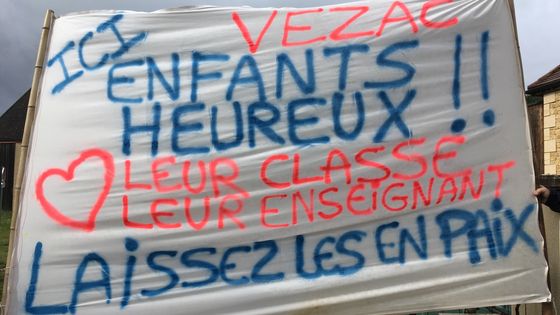 ICI VEZAC
ENFANTS
HEUREUX !!
LEUR CLASSE
LEUR ENSEIGNANT
LAISSEZ LES EN PAIX